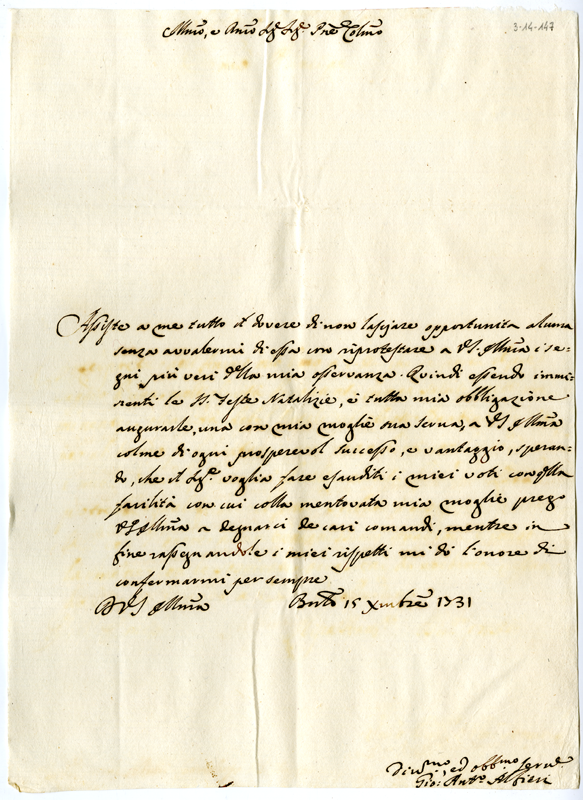 3-14-147
Illmo, e Amo Sig Sig.r Pne Colmo
Assiste a me tutto il dovere di non lasciare opportunita alcuna
senza avvalermi di essa con riprotestare a VS Illma i se-
gni piu veri della mia osservanza. Quindi essendo immi-
nenti le SS. Feste Natalizie, è tutta mia obbligazione
augurarle, una con mia moglie sua serva, a VS Illma
colme di ogni prosperevol successo, e vantaggio, speran-
do, che il Sig.r voglia fare esauditi i miei voti con qlla
facilità con cui colla mentovata mia moglie prego
VS Illma a degnarci de cari comandi, mentre in
fine rassegnandole i miei rispetti mi dò l'onore di
confermarmi per sempre
D VS Illma 15 Xmbre 1731
Divmo, ed obbmo serve
Gio: Anto Alfieri